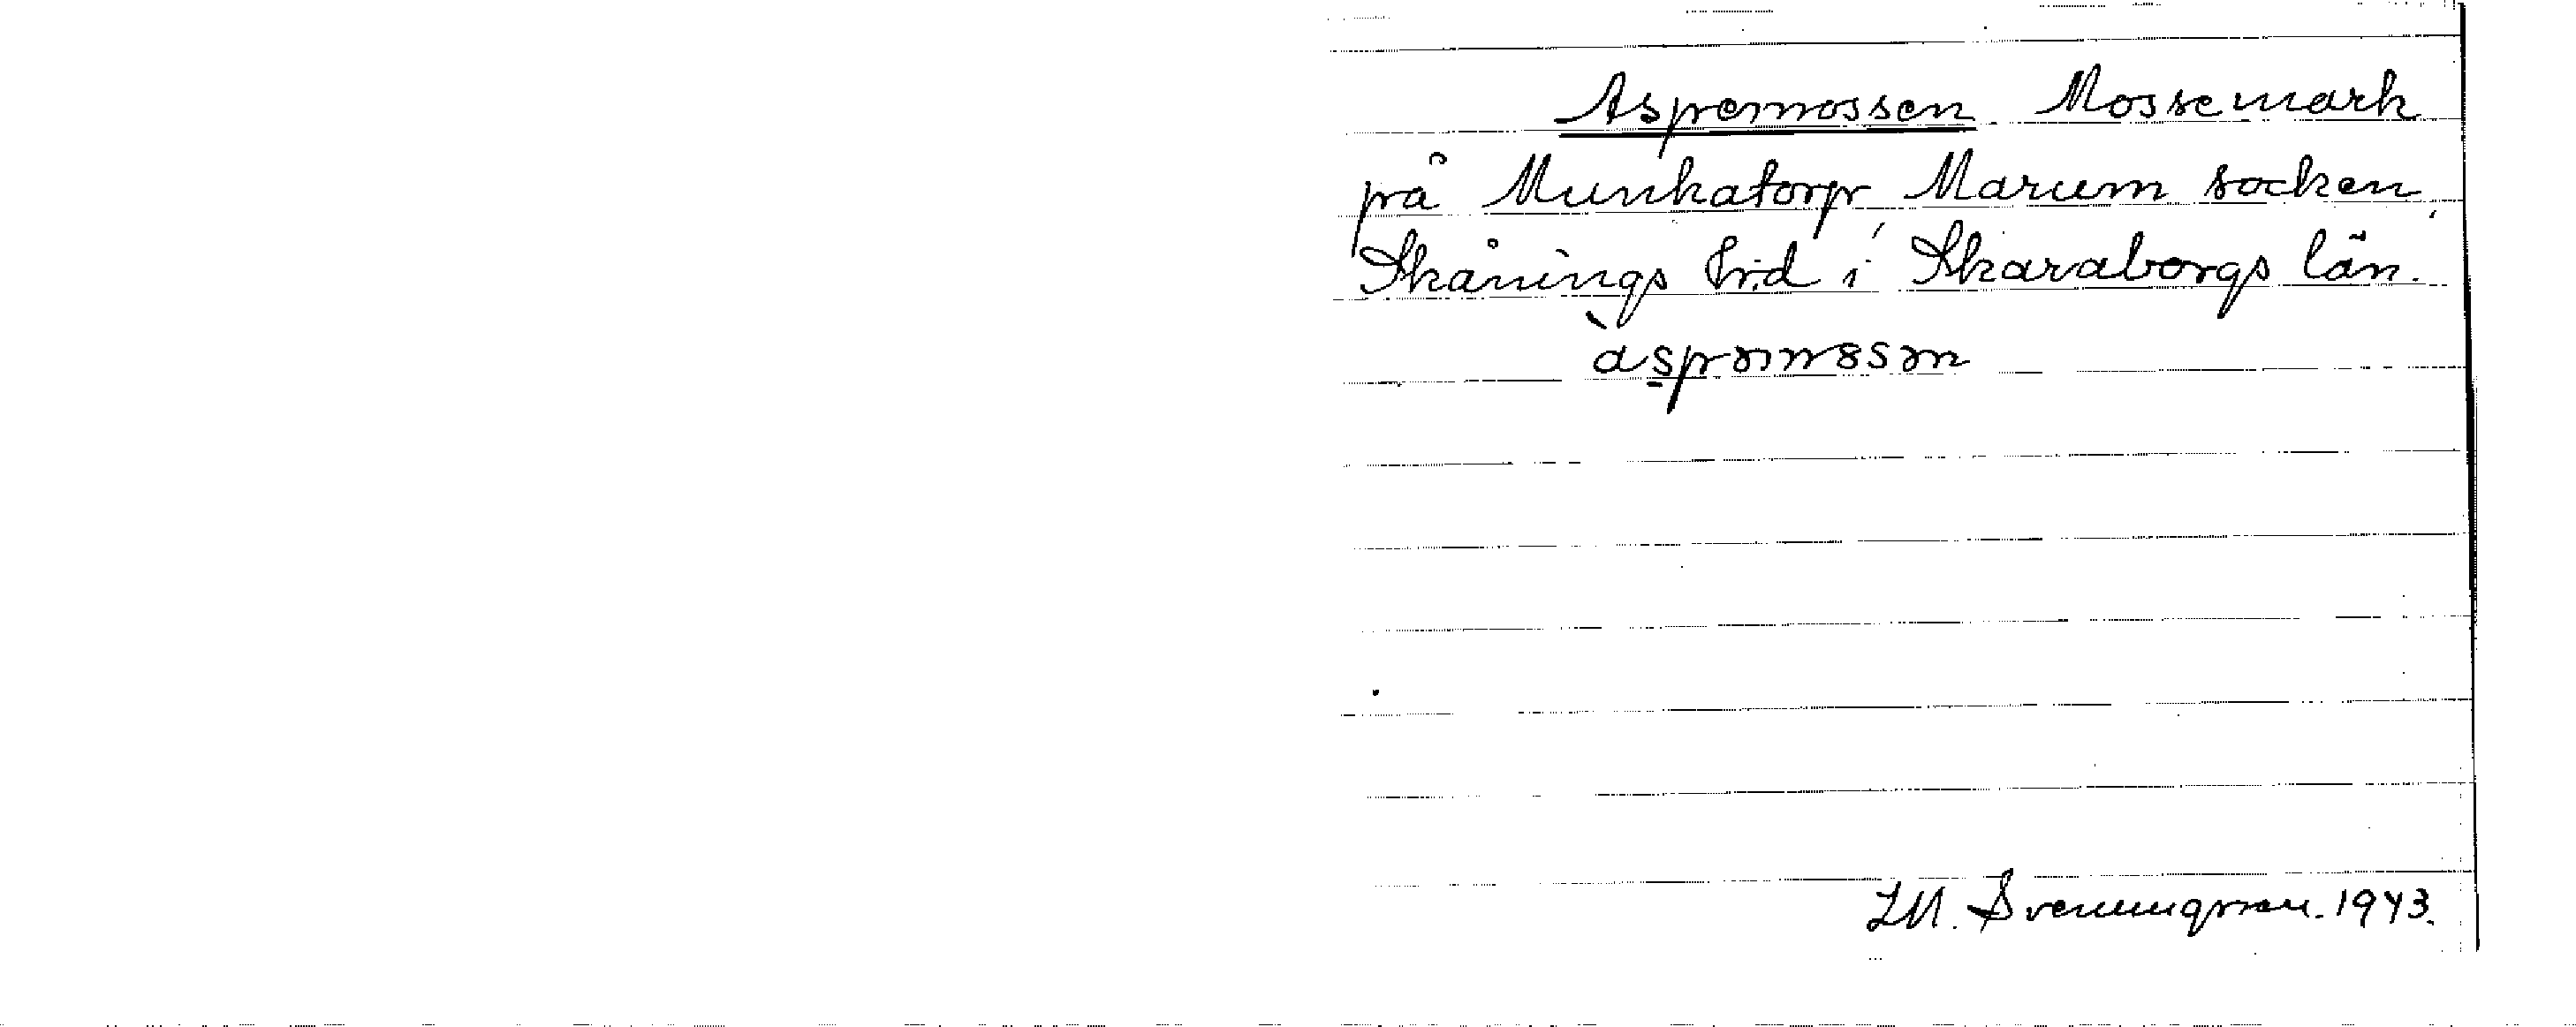 Aspemossen Mossemark
på Munkatorp, Marum socken,
Skånings hd i Skaraborgs län.
àspəmɷsən
I.M. Svenungsson. 1943.